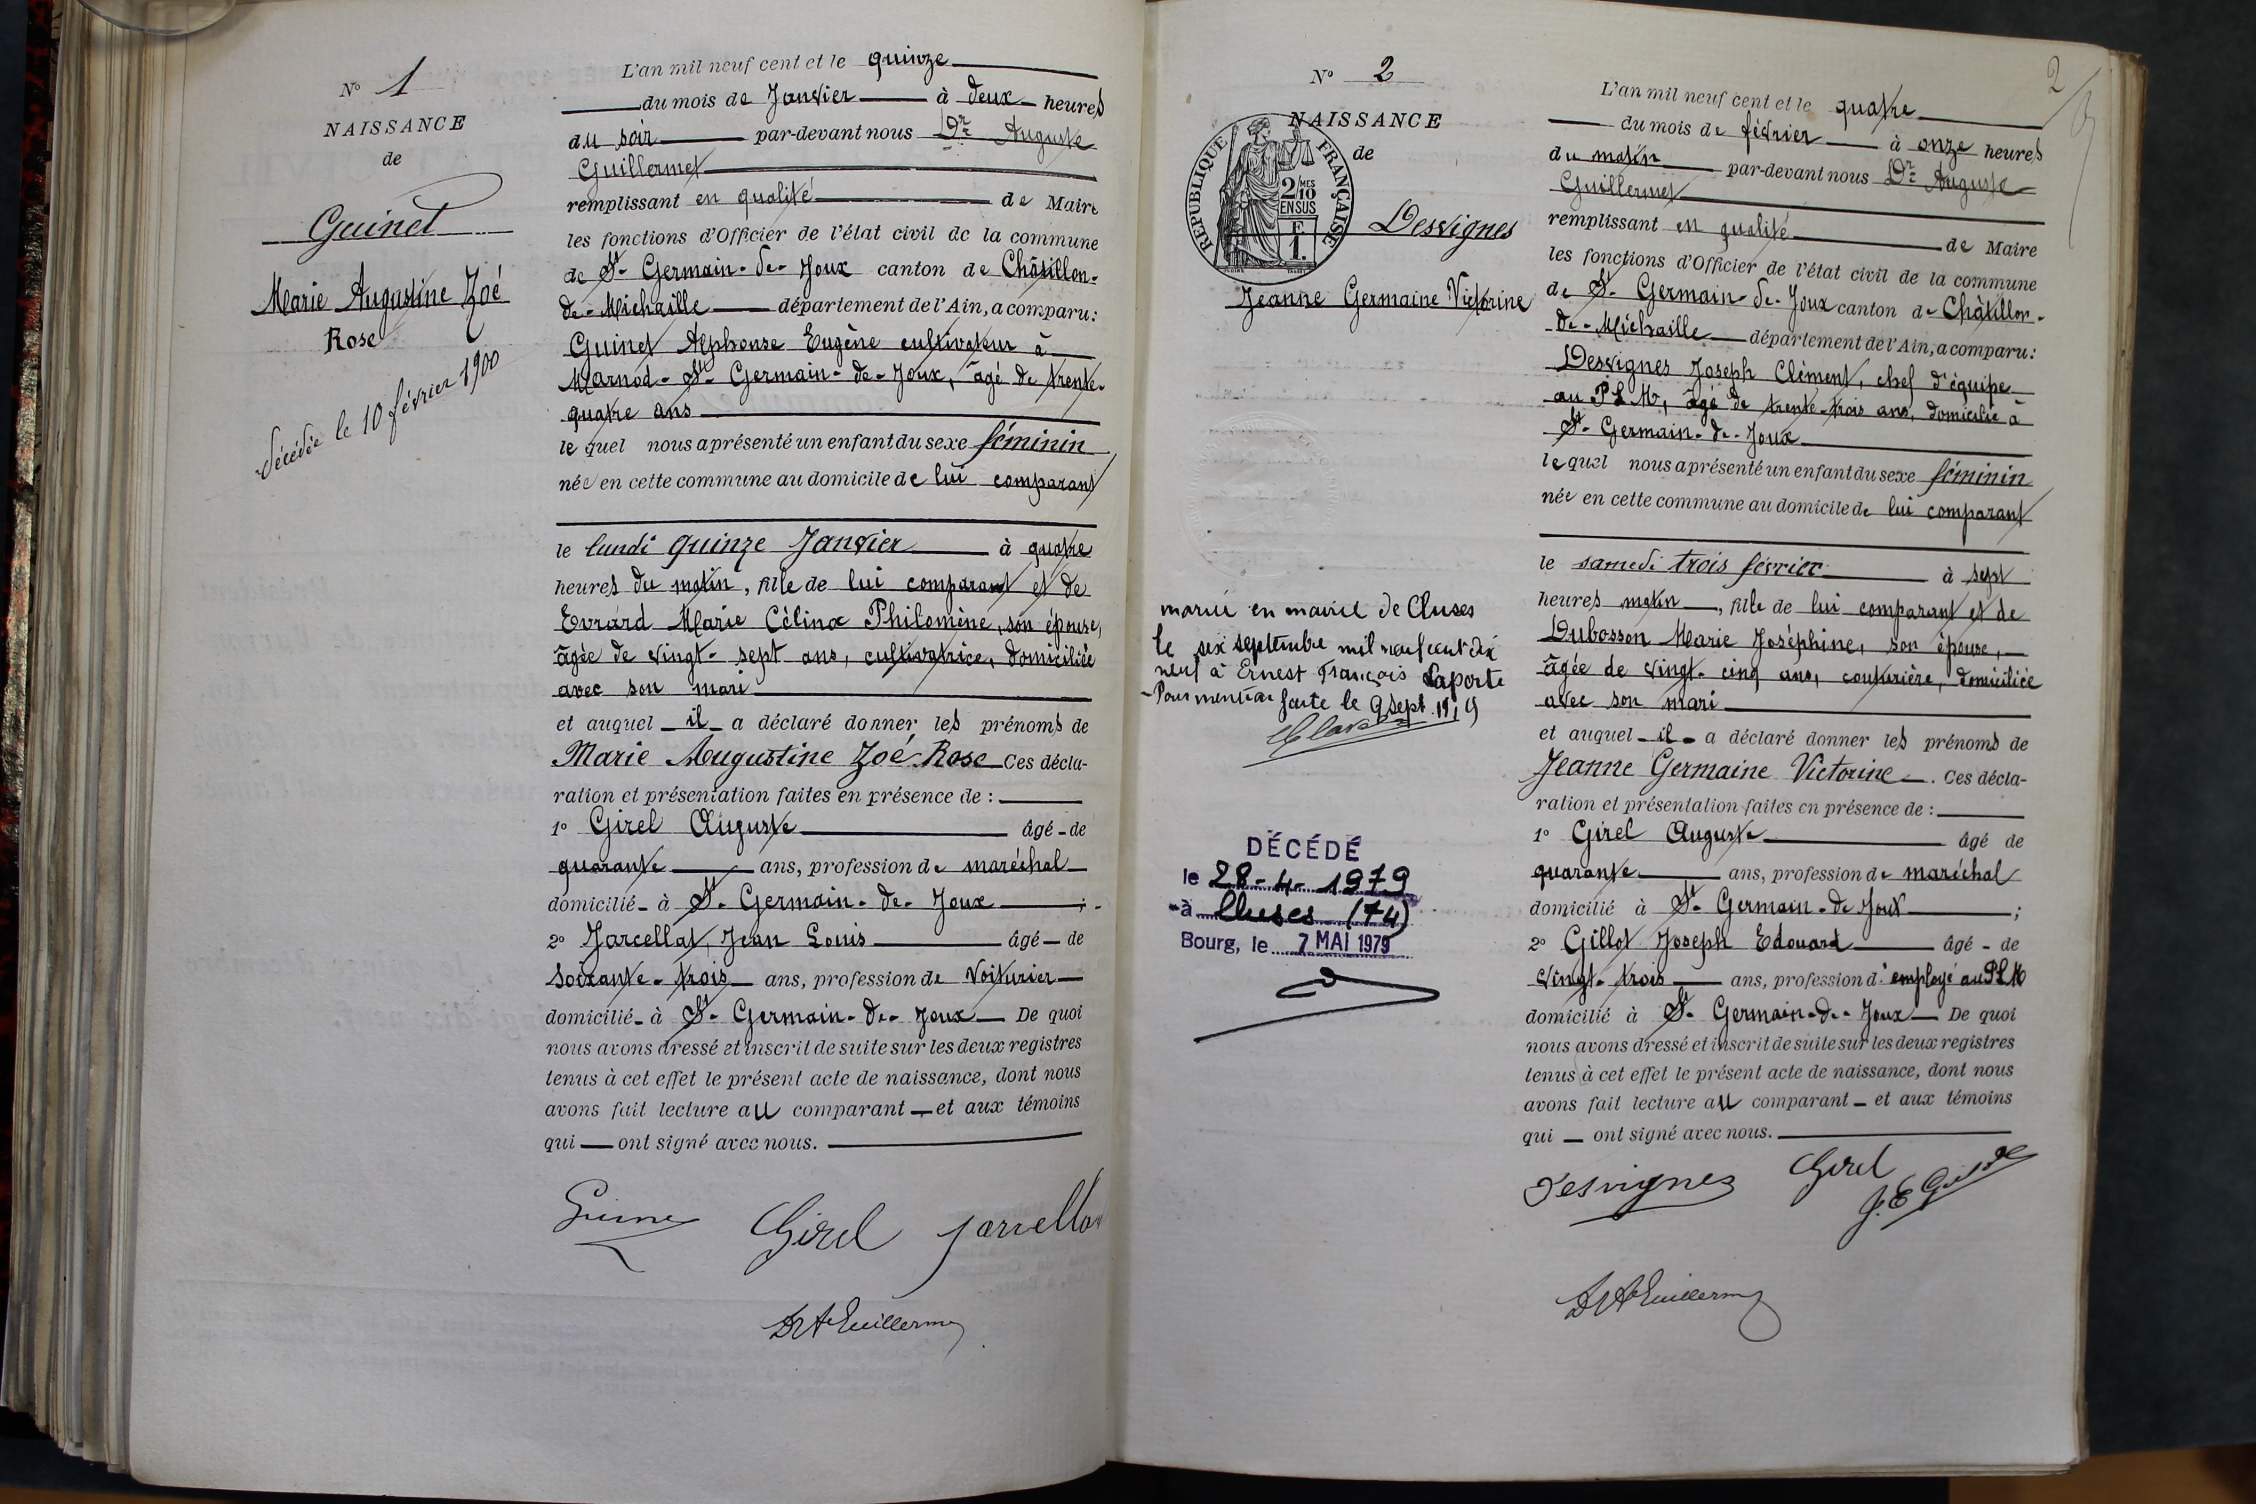 Nº 1
NAISSANCE
de
Guinet
Marie Augustine Zoé
Rose
décédée le 10 février 1900
L'an mil neuf cent et le quinze
du mois de Janvier à deux heures
du soir par-devant nous Dr Auguste
Guillermet
remplissant en qualité de Maire
les fonctions d'Officier de l'état civil de la commune
de St-Germain-de-Joux canton de Châtillon-
de-Michaille département de l'Ain, a comparu:
Guinet Alphonse Eugène cultivateur à
Marnod-St-Germain-de-Joux, âgé de trente-
quatre ans
lequel nous a présenté un enfant du sexe féminin
née en cette commune au domicile de lui comparant
le lundi quinze Janvier à quatre
heures du matin, fille de lui comparant et de
Evrard Marie Célina Philomène, son épouse,
âgée de vingt-sept ans, cultivatrice, domiciliée
avec son mari
et auquel il a déclaré donner les prénoms de
Marie Augustine Zoé Rose Ces décla-
ration et présentation faites en présence de :
1º Girel Auguste âgé de
quarante ans, profession de maréchal
domicilié à St-Germain-de-Joux ;
2º Jarcellat, Jean Louis âgé de
soixante-trois ans, profession de voiturier
domicilié à St-Germain-de-Joux De quoi
nous avons dressé et inscrit de suite sur les deux registres
tenus à cet effet le présent acte de naissance, dont nous
avons fait lecture au comparant et aux témoins
qui ont signé avec nous.
Guinet Girel Jarcellat
Dr Ate Guillermet
2
Nº 2
NAISSANCE
de
RÉPUBLIQUE FRANÇAISE
2/10 MES
EN SUS
F
1.
Desvignes
Jeanne Germaine Victorine
mariée en mairie de Cluses
le six septembre mil neuf cent dix
neuf à Ernest François Laporte
Pour mention faite le 9 sept 1919
DÉCÉDÉ
le 28-4-1979
à Cluses (74)
Bourg, le 7 MAI 1979
L'an mil neuf cent et le quatre
du mois de février à onze heures
du matin par-devant nous Dr Auguste
Guillermet
remplissant en qualité de Maire
les fonctions d'Officier de l'état civil de la commune
de St-Germain-de-Joux canton de Châtillon-
de-Michaille département de l'Ain, a comparu:
Desvignes Joseph Clément, chef d'équipe
au P L M, âgé de trente-trois ans, domicilié à
St-Germain-de-Joux
lequel nous a présenté un enfant du sexe féminin
née en cette commune au domicile de lui comparant
le samedi trois février à sept
heures matin, fille de lui comparant et de
Dubosson Marie Joséphine, son épouse,
âgée de vingt-cinq ans, couturière, domiciliée
avec son mari
et auquel il a déclaré donner les prénoms de
Jeanne Germaine Victorine. Ces décla-
ration et présentation faites en présence de :
1º Girel Auguste âgé de
quarante ans, profession de maréchal
domicilié à St-Germain-de Joux ;
2º Gillot Joseph Edouard âgé de
vingt-trois ans, profession d'employé au PLM
domicilié à St-Germain-de-Joux De quoi
nous avons dressé et inscrit de suite sur les deux registres
tenus à cet effet le présent acte de naissance, dont nous
avons fait lecture au comparant et aux témoins
qui ont signé avec nous.
Desvignes Girel J. E Gillot
Dr Ate Guillermet